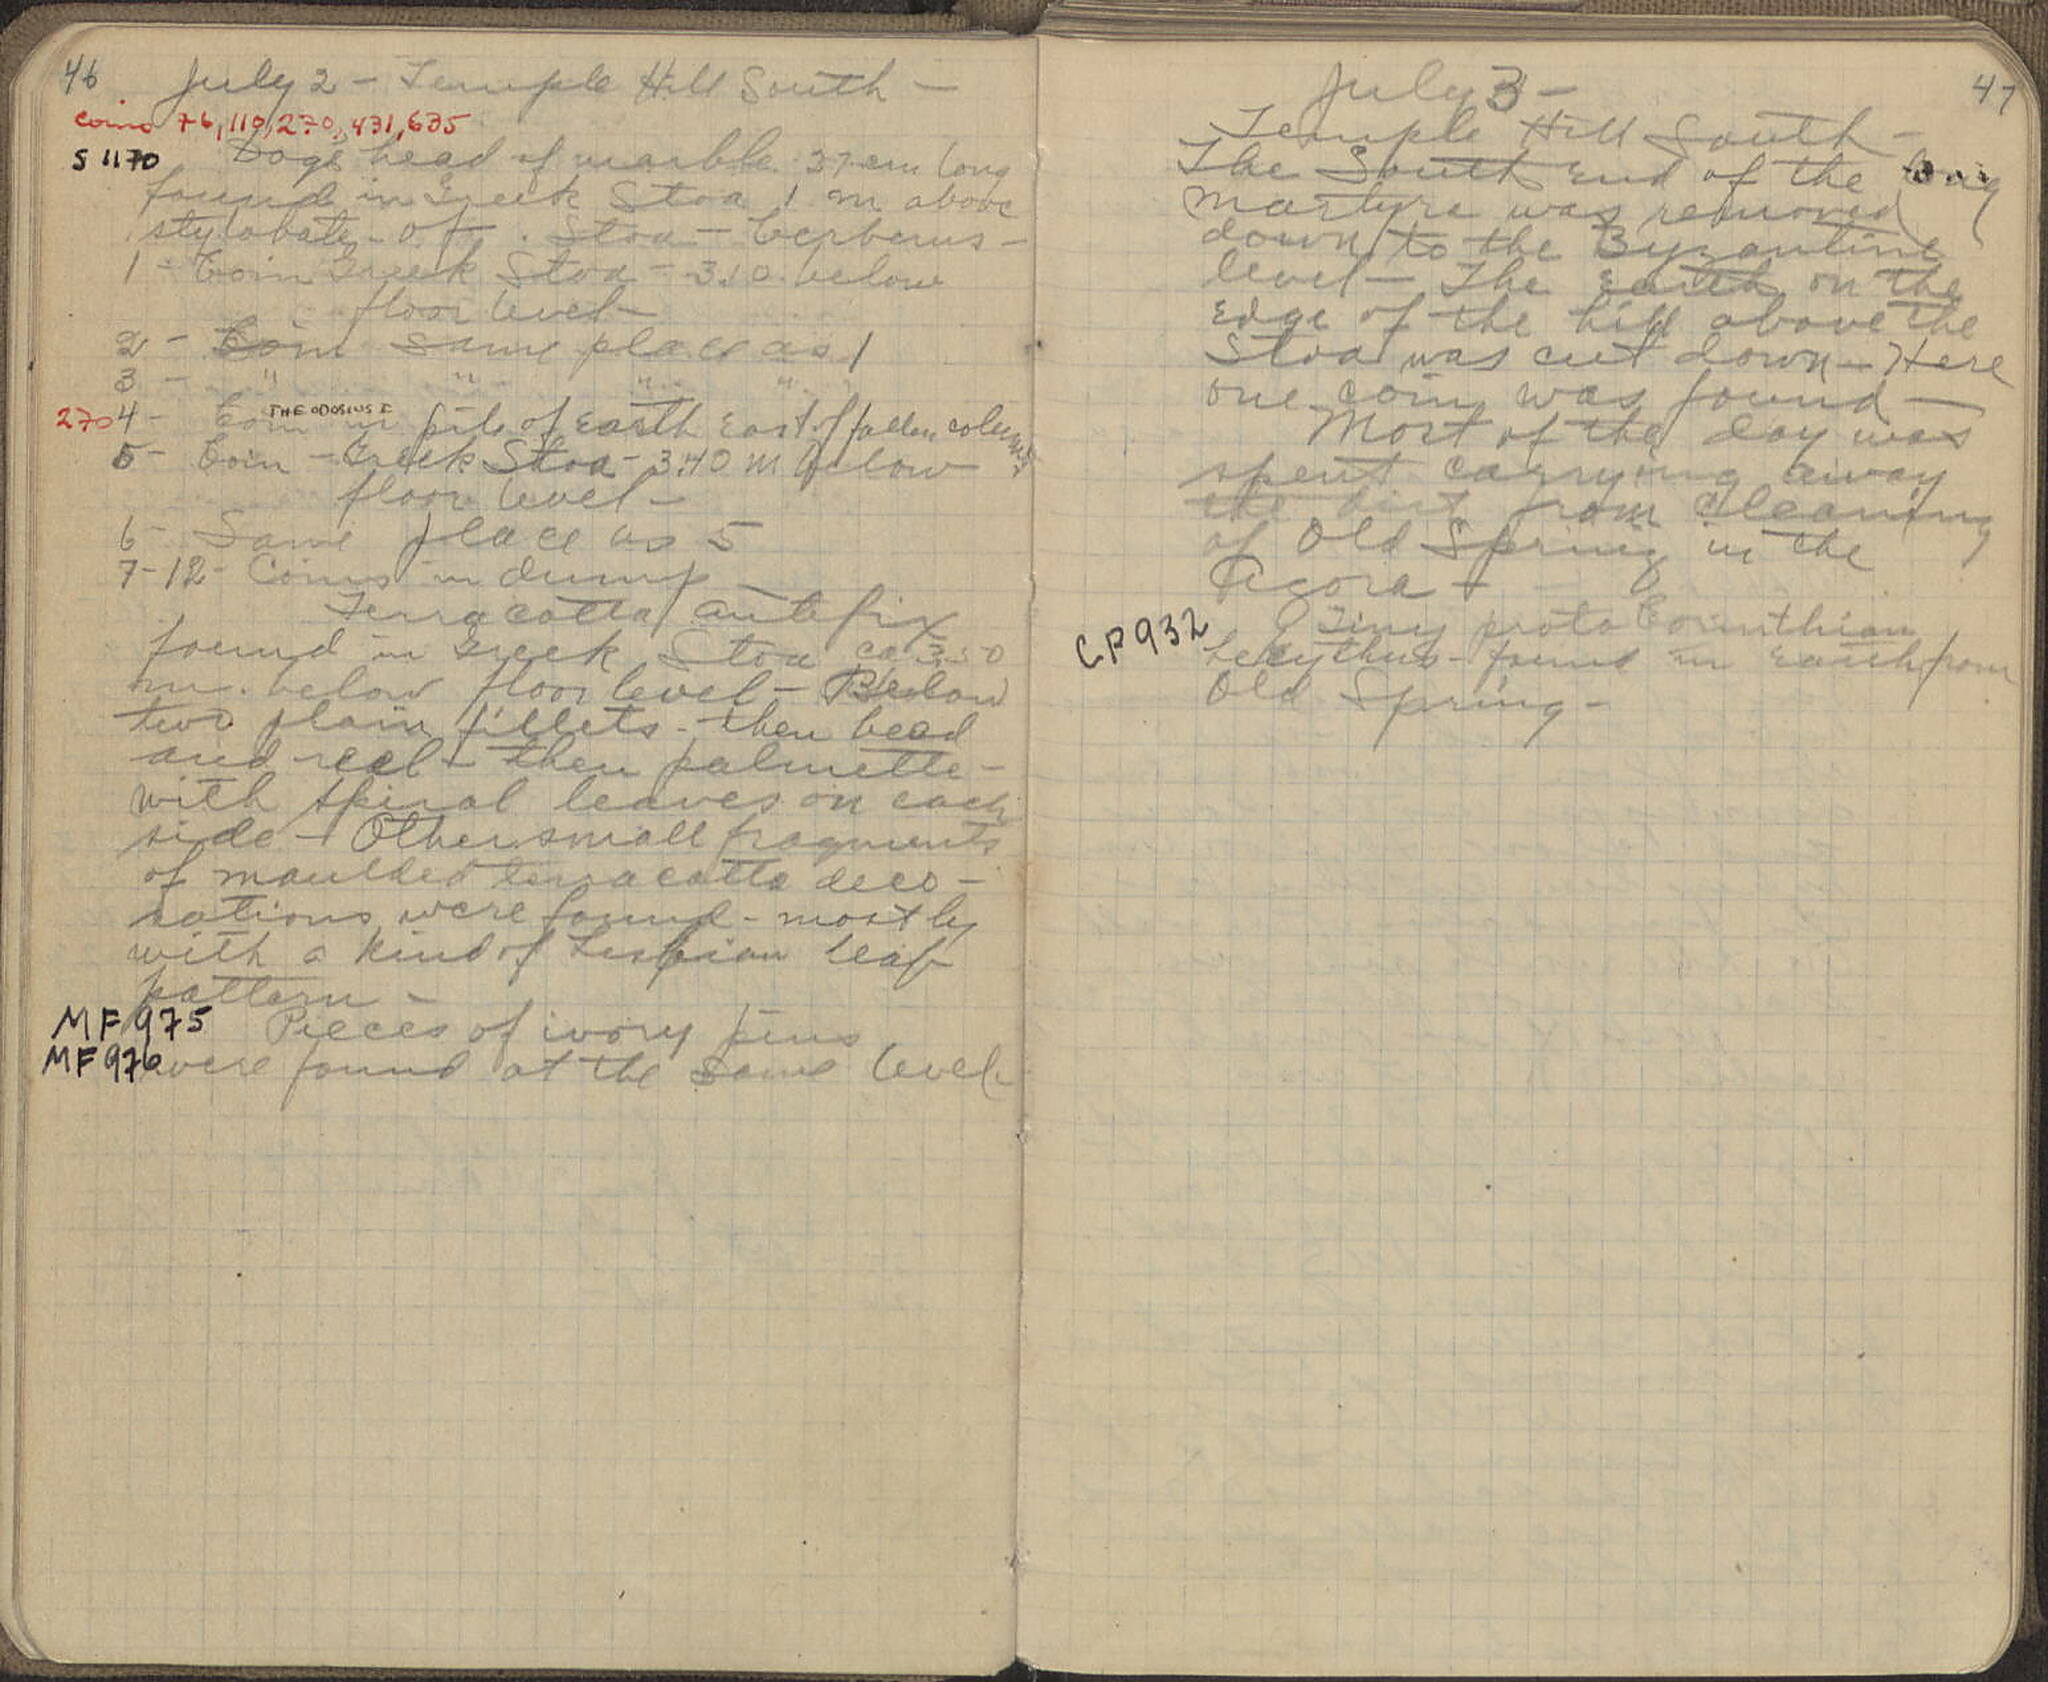 46
July 2 - Temple Hill South -
Coins 76, 110, 270, 431, 635
S 1170
Dog's head of marble 37 cm long
found in Greek Stoa 1 m above
stylobate of Stoa - Cerberus -
1 - Coin Greek Stoa - 3.10 below
floor level -
2 - Coin same place as 1
3 - " " " "
THEODOSIUS I
270 4 - Coin in pile of earth East of fallen columns
5 - Coin - Greek Stoa - 3.40 m below
floor level -
6 - Same place as 5
7-12 - Coins in dump
Terracotta antefix
found in Greek Stoa ca 3.50
m. below floor level - Below
two plain fillets - then bead
and reel - then palmette -
with spiral leaves on each
side - Other small fragments
of moulded terracotta deco -
rations were found - mostly
with a kind of Lesbian leaf
pattern -
MF 975 Pieces of ivory pins
MF 976 were found at the same level -
47
July 3 -
Temple Hill South -
The South end of the long
Martyra was removed
down to the Byzantine
level - The earth on the
edge of the hill above the
Stoa was cut down - Here
one coin was found -
Most of the day was
spent carrying away
the dirt from cleaning
of Old Spring in the
Agora -
CP 932
Tiny proto Corinthian
Lekythus - found in earth from
Old Spring -